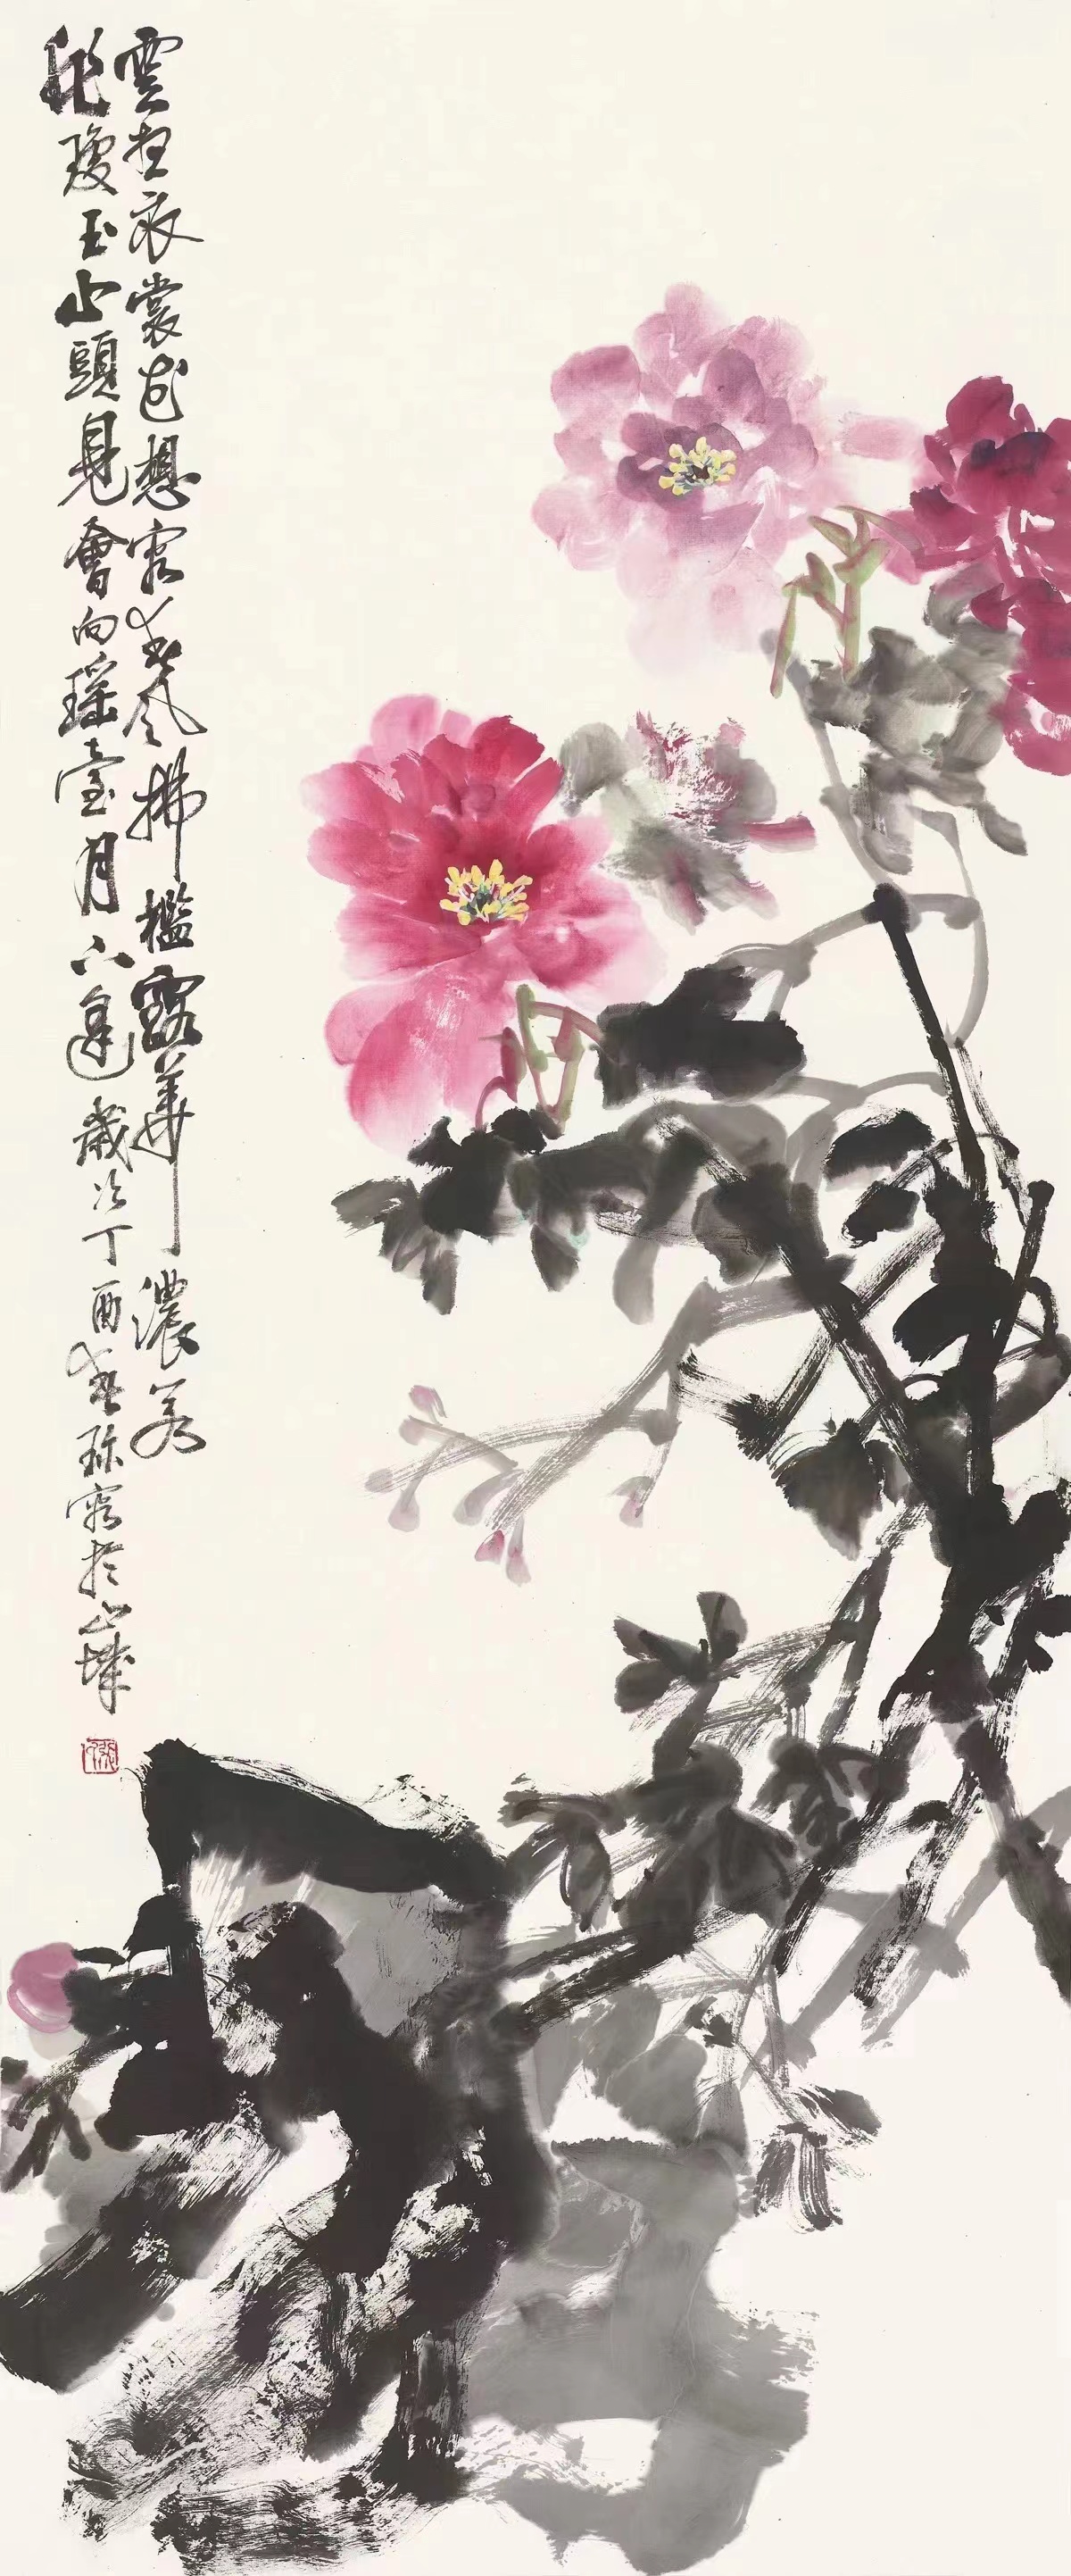 雲想衣裳花想容春风拂檻露華濃若
非瓊玉山頭見會向瑶臺月下逢歲次丁酉春珎寫於山城